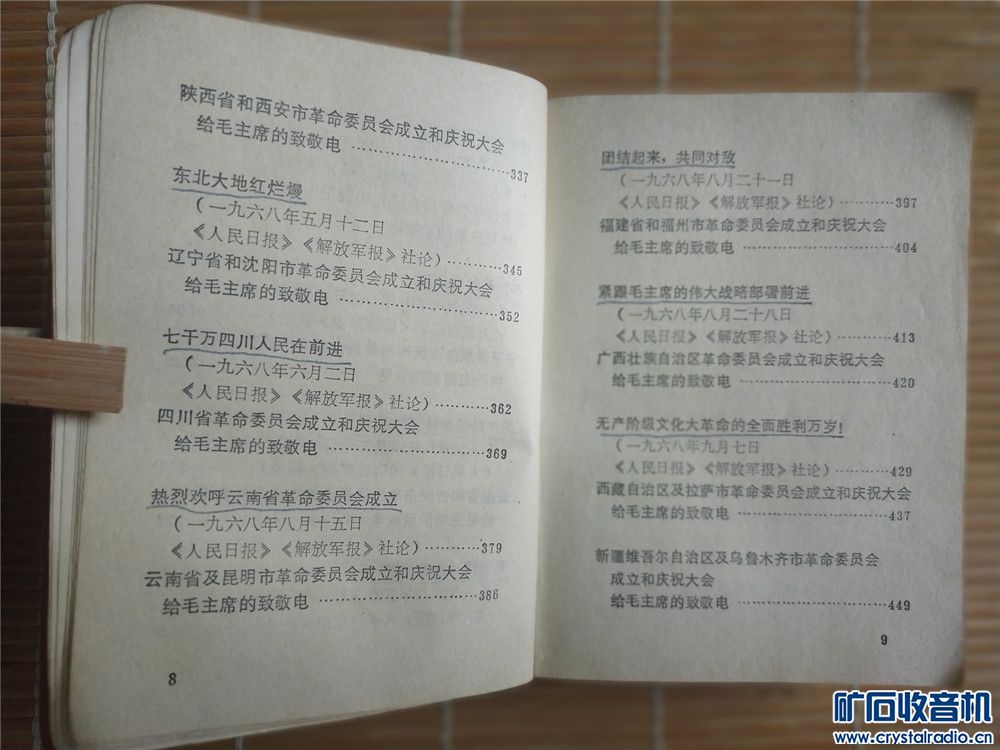 陕西省和西安市革命委员会成立和庆祝大会
给毛主席的致敬电 ……………………337
东北大地红烂熳
(一九六八年五月十二日
《人民日报》《解放军报》社论)…………345
辽宁省和沈阳市革命委员会成立和庆祝大会
给毛主席的致敬电 ……………………352
七千万四川人民在前进
(一九六八年六月二日
《人民日报》《解放军报》社论)…………362
四川省革命委员会成立和庆祝大会
给毛主席的致敬电 ……………………369
热烈欢呼云南省革命委员会成立
(一九六八年八月十五日
《人民日报》《解放军报》社论)…………379
云南省及昆明市革命委员会成立和庆祝大会
给毛主席的致敬电 ……………………386
8
团结起来,共同对敌
(一九六八年八月二十一日
《人民日报》《解放军报》社论)…………397
福建省和福州市革命委员会成立和庆祝大会
给毛主席的致敬电 ……………………404
紧跟毛主席的伟大战略部署前进
(一九六八年八月二十八日
《人民日报》《解放军报》社论)…………413
广西壮族自治区革命委员会成立和庆祝大会
给毛主席的致敬电 ……………………420
无产阶级文化大革命的全面胜利万岁!
(一九六八年九月七日
《人民日报》《解放军报》社论)…………429
西藏自治区及拉萨市革命委员会成立和庆祝大会
给毛主席的致敬电 ……………………437
新疆维吾尔自治区及乌鲁木齐市革命委员会
成立和庆祝大会
给毛主席的致敬电 ……………………449
9
矿石收音机
www.crystalradio.cn